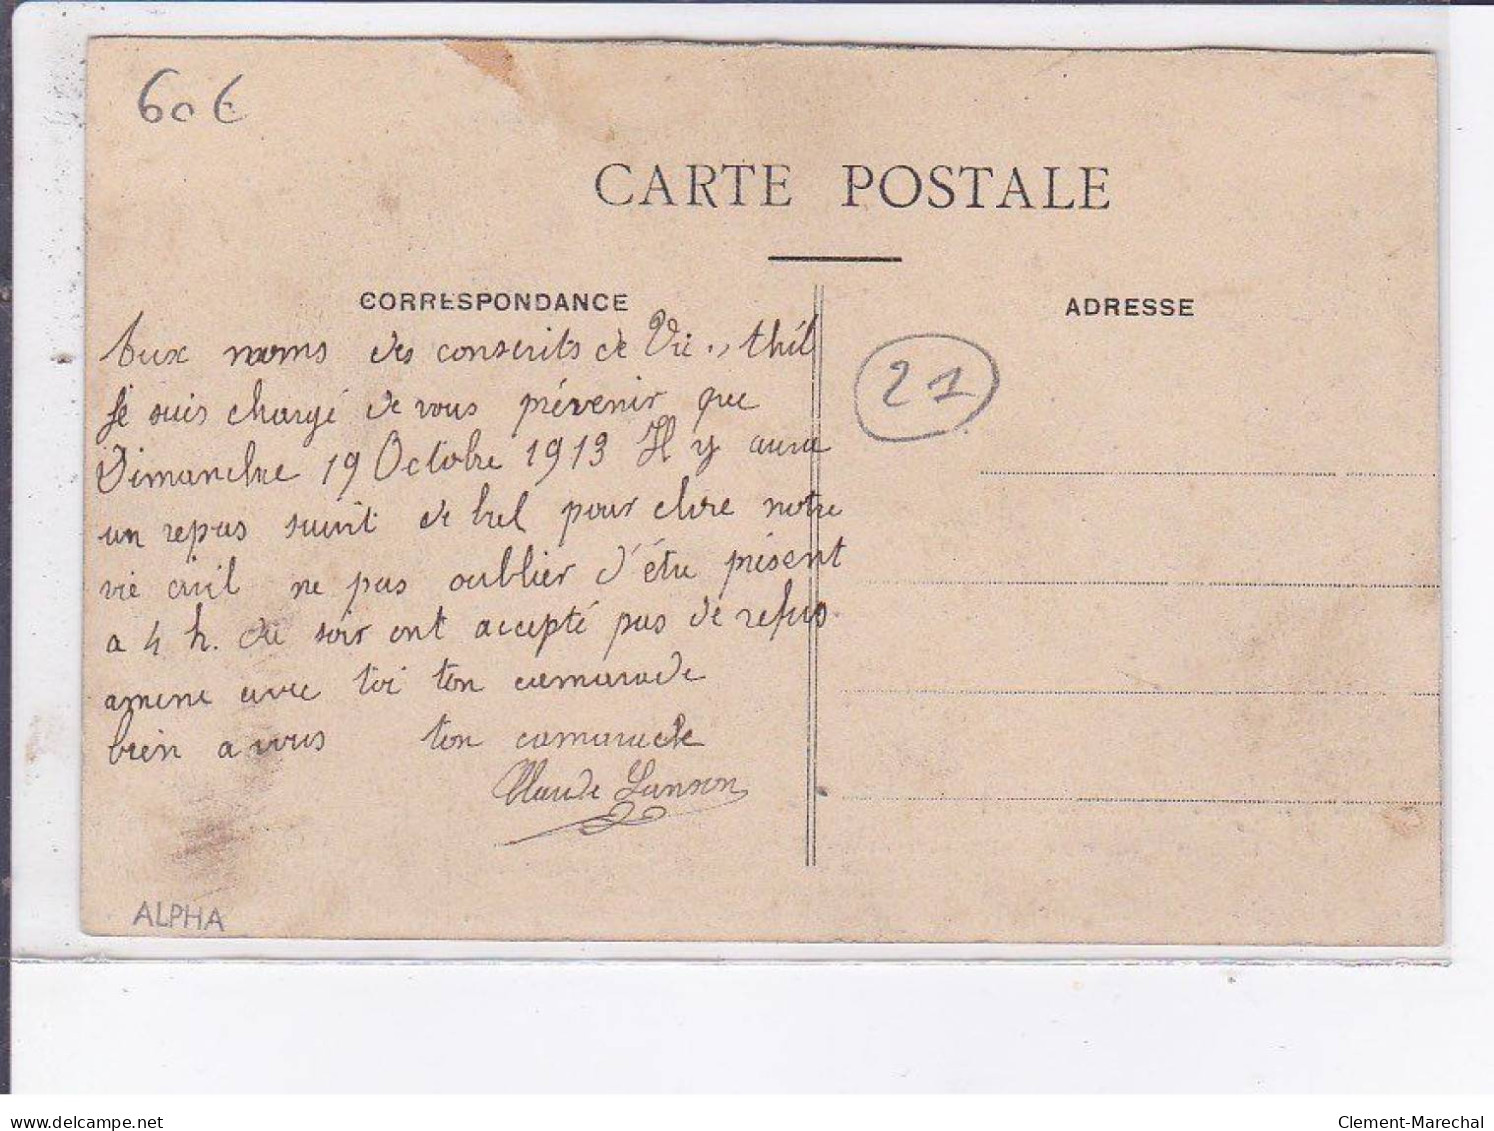 60 €
CARTE POSTALE
CORRESPONDANCE
ADRESSE
Aux noms des conscrits de Vic
Je suis chargé de vous prévenir que
Dimanche 19 Octobre 1913 Il y aura
un repas suivit de bal pour clore notre
vie civil ne pas oublier d'étre présent
a 4 h. du soir ont accepté pas de refus
amene avec toi ton camarade
bien a vous ton camarade
Claude Lanson
21
ALPHA
delcampe.net
Clement-Marechal